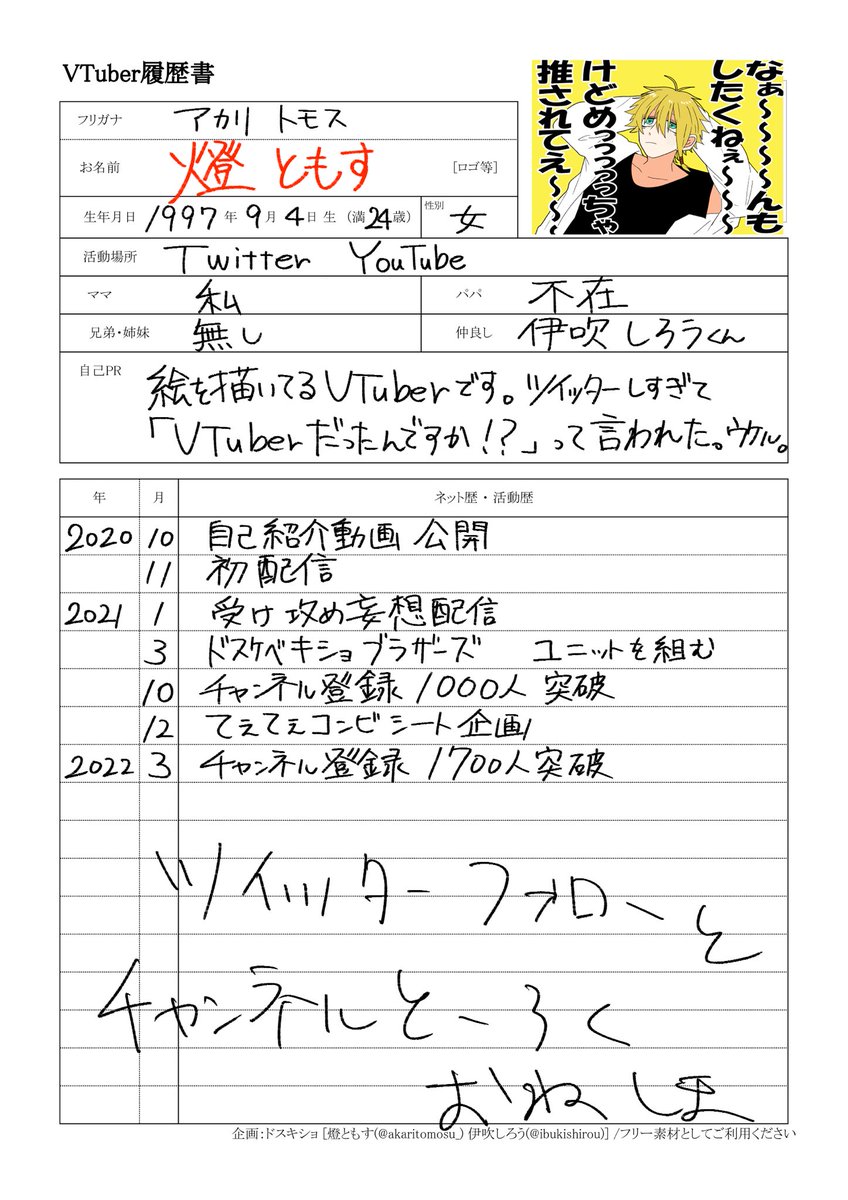 VTuber履歴書
なぁ〜〜〜〜んも
したくねぇ〜〜〜
けどめっっっっっちゃ
推されてえ〜〜〜
フリガナ アカリ トモス
お名前 燈 ともす [ロゴ等]
生年月日 1997年9月4日生 (満24歳) 性別 女
活動場所 Twitter YouTube
ママ 私 パパ 不在
兄弟・姉妹 無し 仲良し 伊吹しろうくん
自己PR 絵を描いてるVTuberです。ツイッターしすぎて
「VTuberだったんですか!?」って言われた。ウケル。
年 月 ネット歴・活動歴
2020 10 自己紹介動画 公開
11 初配信
2021 1 受け攻め妄想配信
3 ドスケベキショブラザーズ ユニットを組む
10 チャンネル登録 1000人 突破
12 てぇてぇコンビシート企画
2022 3 チャンネル登録 1700人突破
ツイッターフォローと
チャンネルとーろく
おねしま
企画:ドスキショ [燈ともす(@akaritomosu_) 伊吹しろう(@ibukishirou)] /フリー素材としてご利用ください